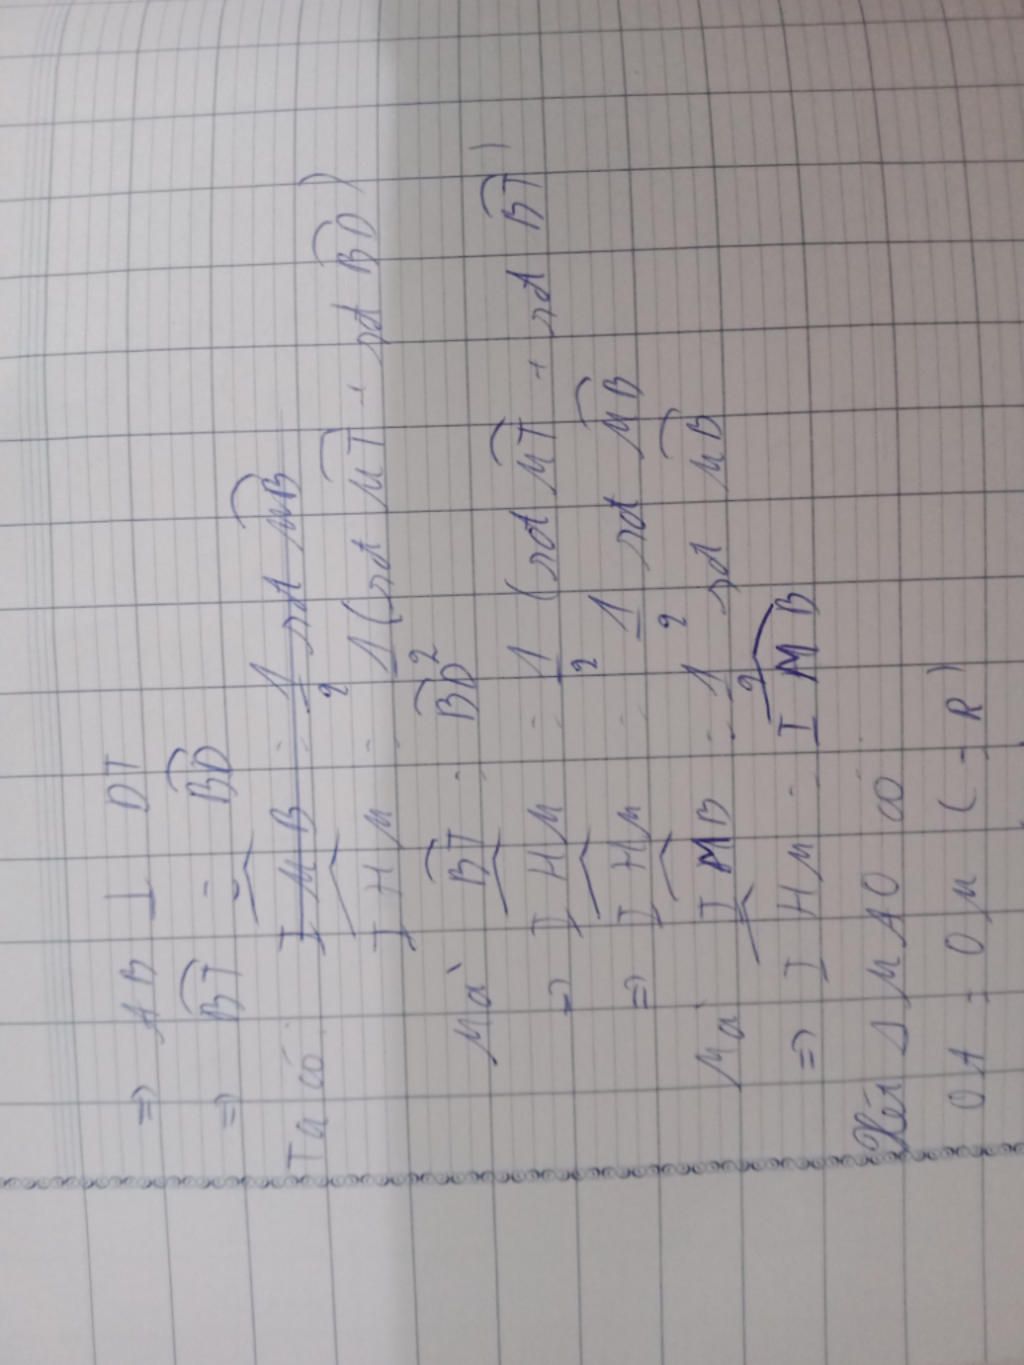 ⇒ AB ⊥ DT
⇒ B͡T = B͡D
Ta có: I M B = 1/2 sđ M͡B
I H M = 1/2 (sđ M͡T + sđ B͡D)
Mà B͡T = B͡D
⇒ I H M = 1/2 (sđ M͡T + sđ B͡T)
⇒ I H M = 1/2 sđ M͡B
Mà I M B = 1/2 sđ M͡B
⇒ I H M = I M B
Xét Δ M A O có:
O A = O M ( = R )